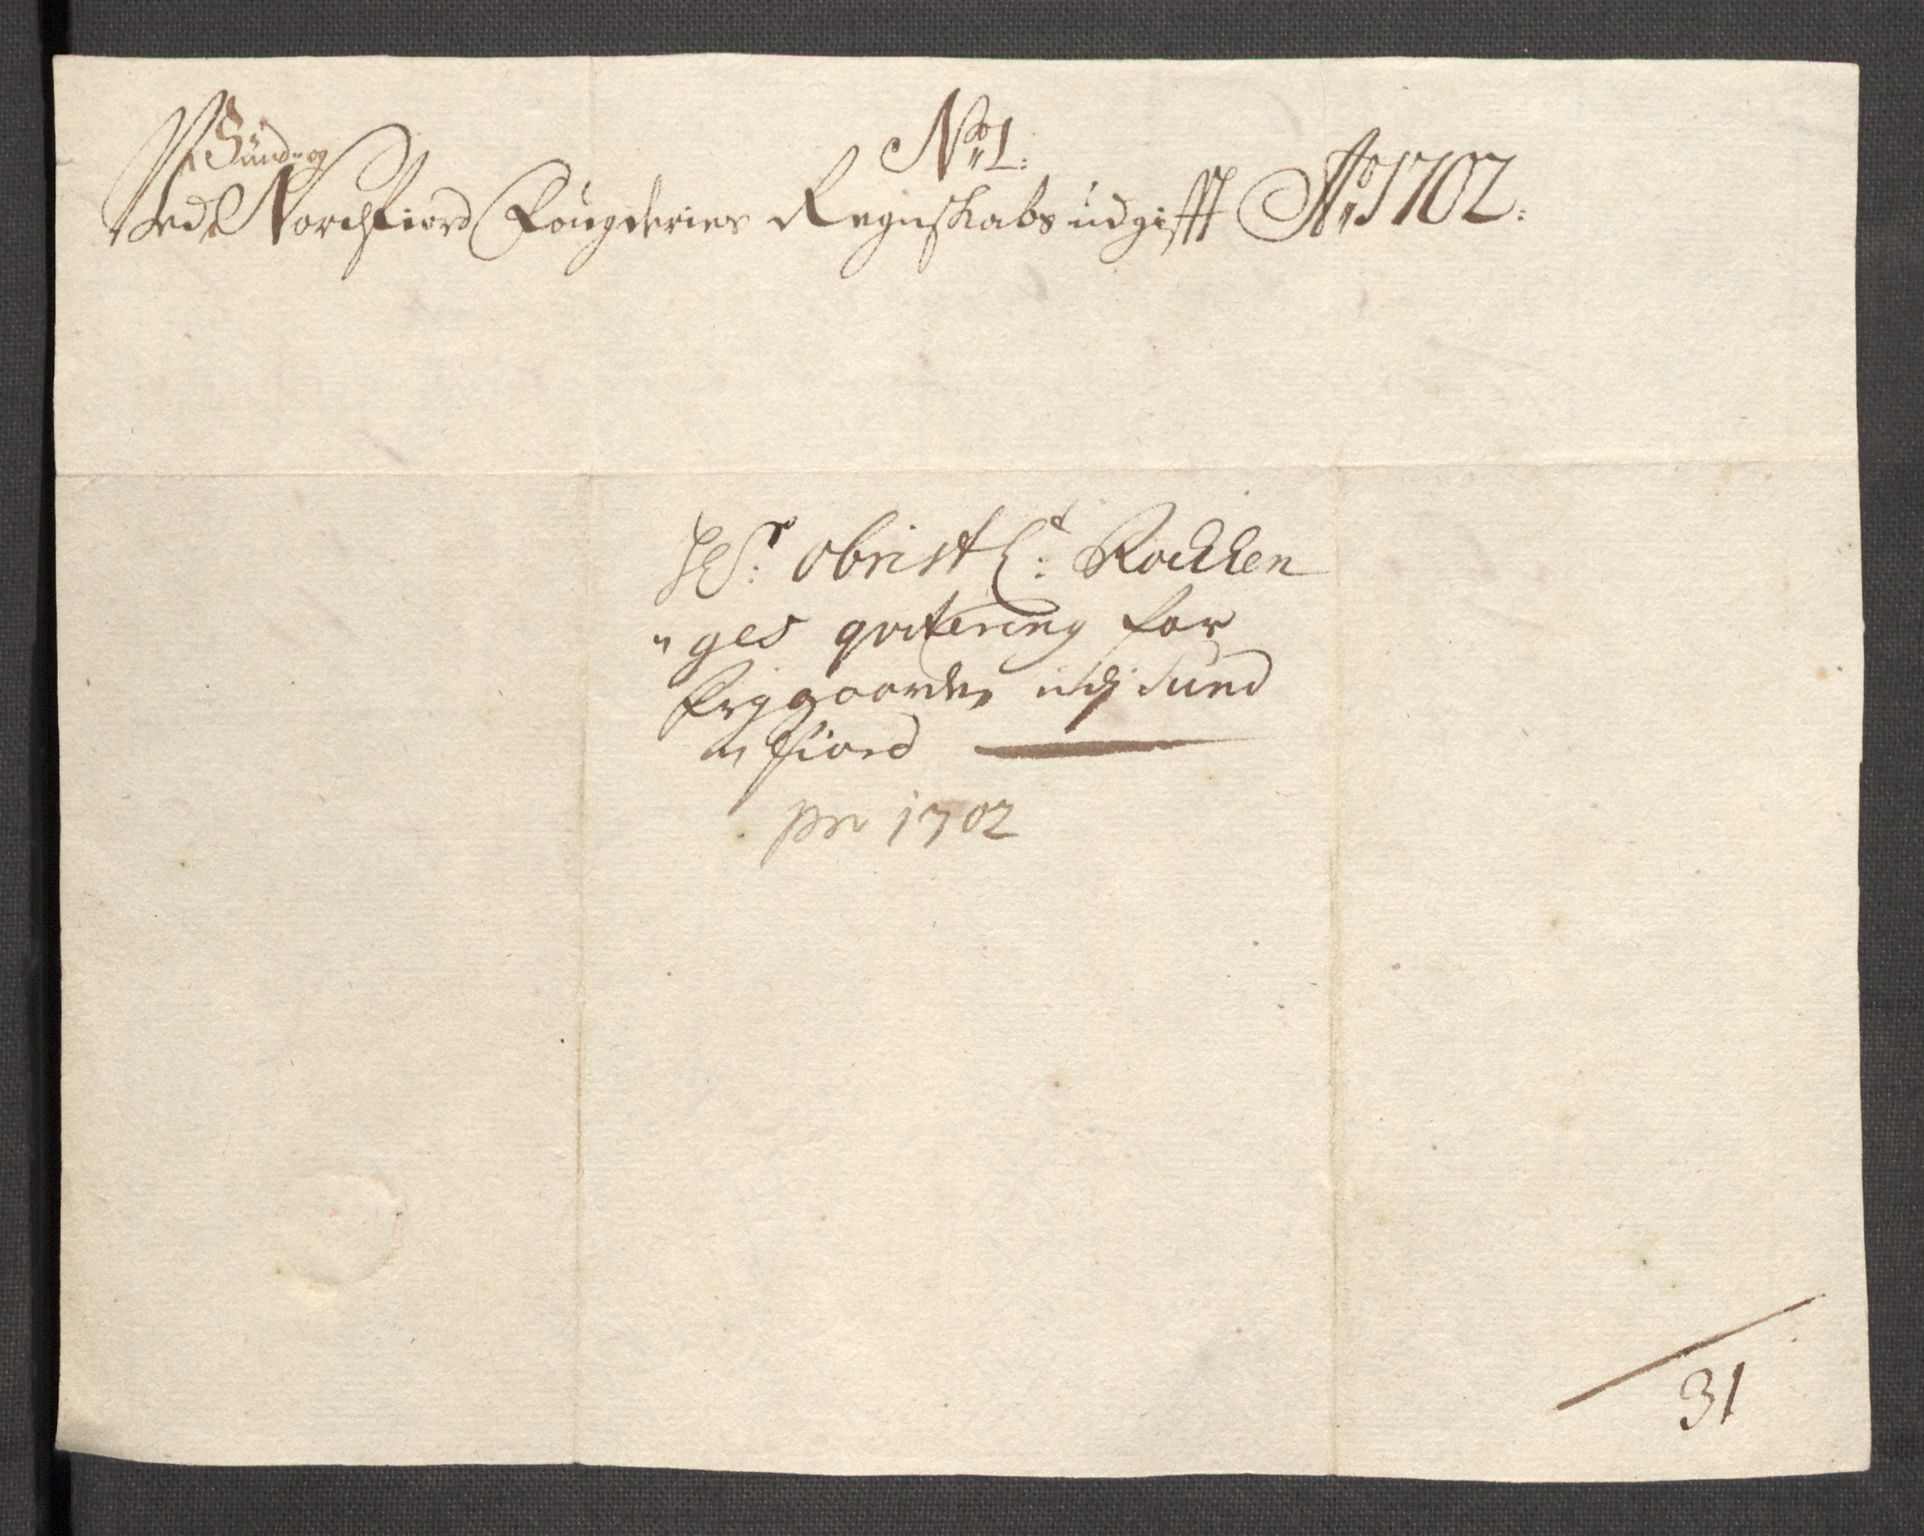 No 1:
Sünd- og
Ved Nordfiord Fougderies Regnskabs udgifft Ao 1702:
Hr. Obrist Lt: Rocklen
"ges qvitering for
friggaarder udj Sund
"fiord
pro 1702
31